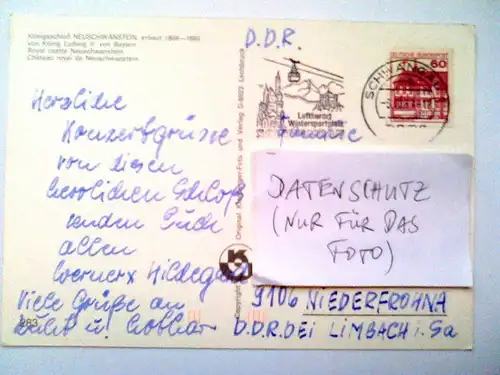 Königsschloß NEUSCHWANSTEIN, erbaut 1869-1886
von König Ludwig II. von Bayern
Royal castle Neuschwanstein
Château royal de Neuschwanstein
D.D.R.
DEUTSCHE BUNDESPOST
60
SCHWANGAU
Luftkurort
Wintersportplatz
Herzliche
Familie
von diesen
herrlichen Schloß
senden Euch
allen
Werner u. Hildegard
Viele Grüße an
u. Lothar
DATENSCHUTZ
(NUR FÜR DAS
FOTO)
9106 NIEDERFROHNA
D.D.R. BEI LIMBACH i. Sa
963
Copyright
Original
Verlag D-8923 Lechbruck